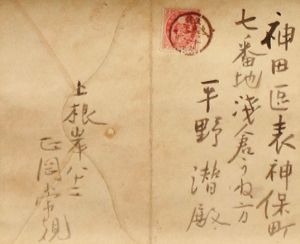 神田區表神保町
七番地淺倉うね方
平野潜殿
上根岸八十二
正岡常規